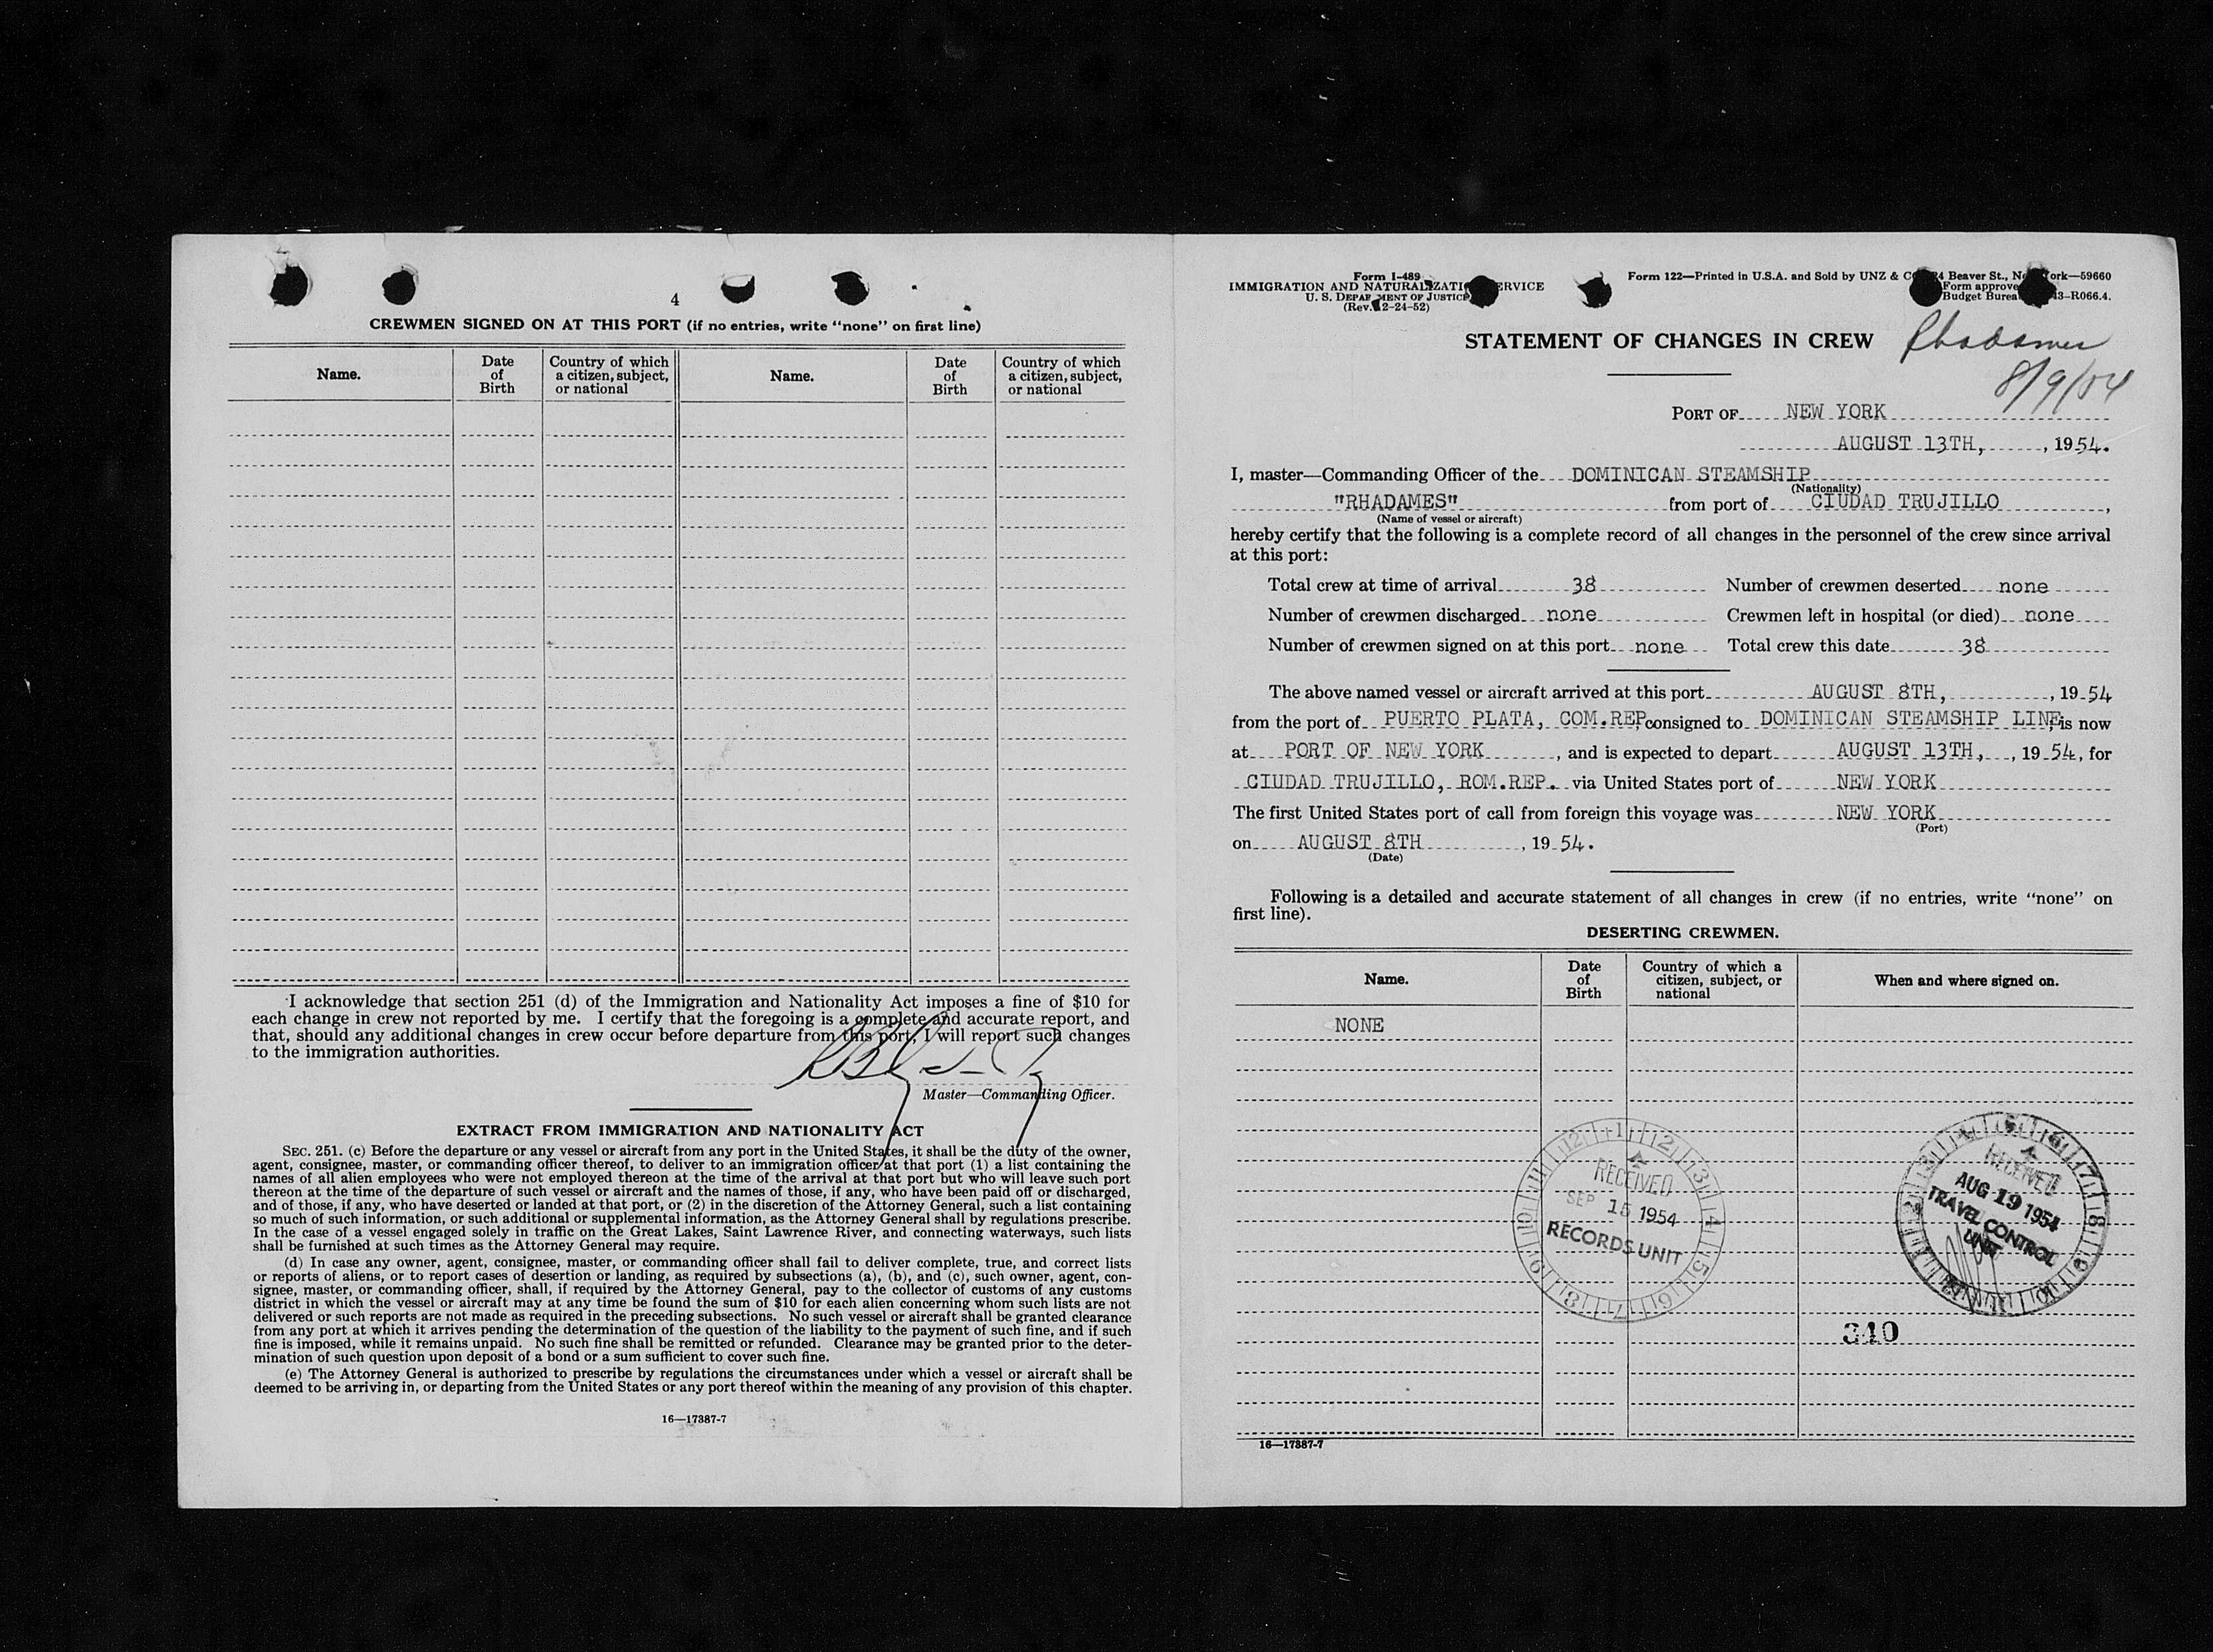 4
CREWMEN SIGNED ON AT THIS PORT (if no entries, write "none" on first line)
Name. Date of Birth Country of which a citizen, subject, or national Name. Date of Birth Country of which a citizen, subject, or national
I acknowledge that section 251 (d) of the Immigration and Nationality Act imposes a fine of $10 for
each change in crew not reported by me. I certify that the foregoing is a complete and accurate report, and
that, should any additional changes in crew occur before departure from this port, I will report such changes
to the immigration authorities.
Master—Commanding Officer.
EXTRACT FROM IMMIGRATION AND NATIONALITY ACT
SEC. 251. (c) Before the departure or any vessel or aircraft from any port in the United States, it shall be the duty of the owner,
agent, consignee, master, or commanding officer thereof, to deliver to an immigration officer at that port (1) a list containing the
names of all alien employees who were not employed thereon at the time of the arrival at that port but who will leave such port
thereon at the time of the departure of such vessel or aircraft and the names of those, if any, who have been paid off or discharged,
and of those, if any, who have deserted or landed at that port, or (2) in the discretion of the Attorney General, such a list containing
so much of such information, or such additional or supplemental information, as the Attorney General shall by regulations prescribe.
In the case of a vessel engaged solely in traffic on the Great Lakes, Saint Lawrence River, and connecting waterways, such lists
shall be furnished at such times as the Attorney General may require.
(d) In case any owner, agent, consignee, master, or commanding officer shall fail to deliver complete, true, and correct lists
or reports of aliens, or to report cases of desertion or landing, as required by subsections (a), (b), and (c), such owner, agent, con-
signee, master, or commanding officer, shall, if required by the Attorney General, pay to the collector of customs of any customs
district in which the vessel or aircraft may at any time be found the sum of $10 for each alien concerning whom such lists are not
delivered or such reports are not made as required in the preceding subsections. No such vessel or aircraft shall be granted clearance
from any port at which it arrives pending the determination of the question of the liability to the payment of such fine, and if such
fine is imposed, while it remains unpaid. No such fine shall be remitted or refunded. Clearance may be granted prior to the deter-
mination of such question upon deposit of a bond or a sum sufficient to cover such fine.
(e) The Attorney General is authorized to prescribe by regulations the circumstances under which a vessel or aircraft shall be
deemed to be arriving in, or departing from the United States or any port thereof within the meaning of any provision of this chapter.
16—17387-7
Form I-489
IMMIGRATION AND NATURALIZATION SERVICE
U. S. DEPARTMENT OF JUSTICE
(Rev. 12-24-52)
Form 122—Printed in U.S.A. and Sold by UNZ & CO., 24 Beaver St., New York—59660
Form approved
Budget Bureau 43-R066.4.
STATEMENT OF CHANGES IN CREW Rhadames
8/9/54
PORT OF NEW YORK
AUGUST 13TH, , 1954.
I, master—Commanding Officer of the DOMINICAN STEAMSHIP
(Nationality)
"RHADAMES" from port of CIUDAD TRUJILLO ,
(Name of vessel or aircraft)
hereby certify that the following is a complete record of all changes in the personnel of the crew since arrival
at this port:
Total crew at time of arrival 38 Number of crewmen deserted none
Number of crewmen discharged none Crewmen left in hospital (or died) none
Number of crewmen signed on at this port none Total crew this date 38
The above named vessel or aircraft arrived at this port AUGUST 8TH, , 19 54
from the port of PUERTO PLATA, COM.REP, consigned to DOMINICAN STEAMSHIP LINE, is now
at PORT OF NEW YORK , and is expected to depart AUGUST 13TH, , 19 54, for
CIUDAD TRUJILLO, ROM.REP. via United States port of NEW YORK
The first United States port of call from foreign this voyage was NEW YORK
(Port)
on AUGUST 8TH , 19 54.
(Date)
Following is a detailed and accurate statement of all changes in crew (if no entries, write "none" on
first line).
DESERTING CREWMEN.
Name. Date of Birth Country of which a citizen, subject, or national When and where signed on.
NONE
RECEIVED
SEP 15 1954
RECORDS UNIT
RECEIVED
AUG 19 1954
TRAVEL CONTROL
UNIT
340
16—17387-7